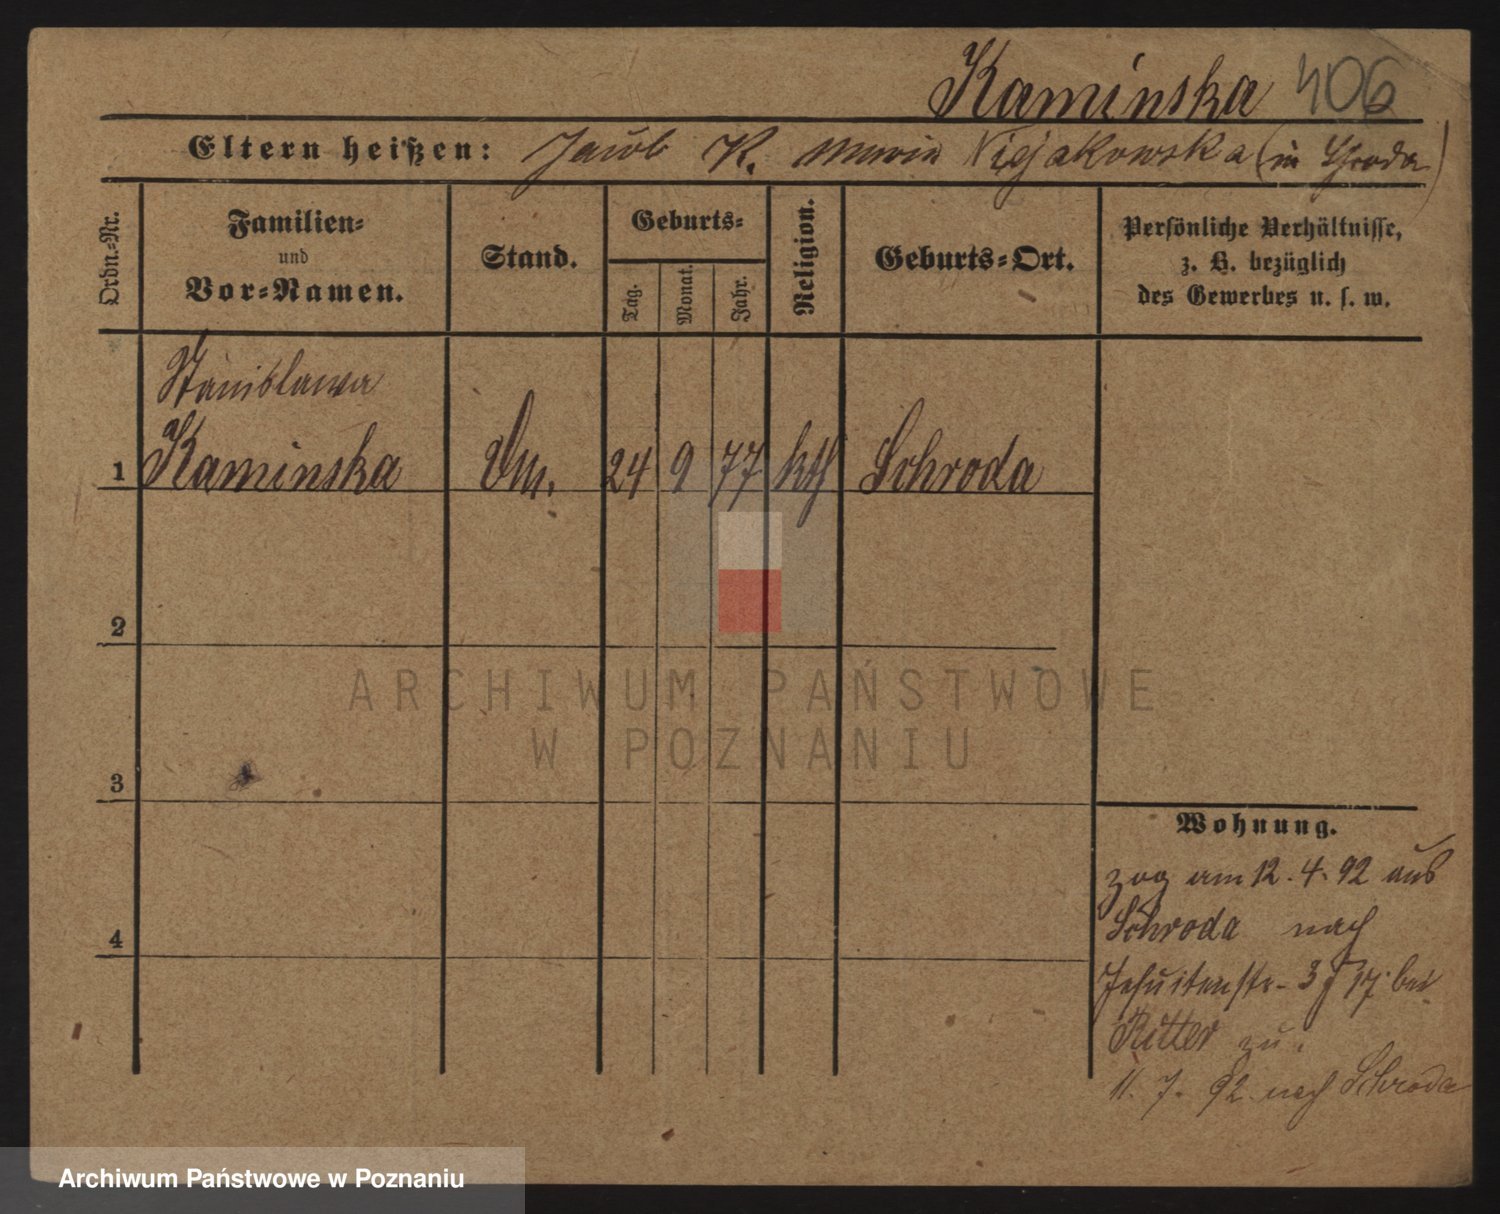 Kaminska 406
Eltern heißen: Jacob K. Maria Niejakowska (in Schroda)
Ordn.-Nr.
Familien-
und
Vor-Namen.
Stand.
Geburts-
Tag.
Monat.
Jahr.
Religion.
Geburts-Ort.
Persönliche Verhältnisse,
z. B. bezüglich
des Gewerbes u. s. w.
Stanislawa
1 Kaminska 24 9 77 kth Schroda
2
3
4
ARCHIWUM PAŃSTWOWE
W POZNANIU
Wohnung.
zog am 12.4.92 aus
Schroda nach
Jesuitenstr. bei
Ritter zu.
11. 7. 92 nach Schroda
Archiwum Państwowe w Poznaniu